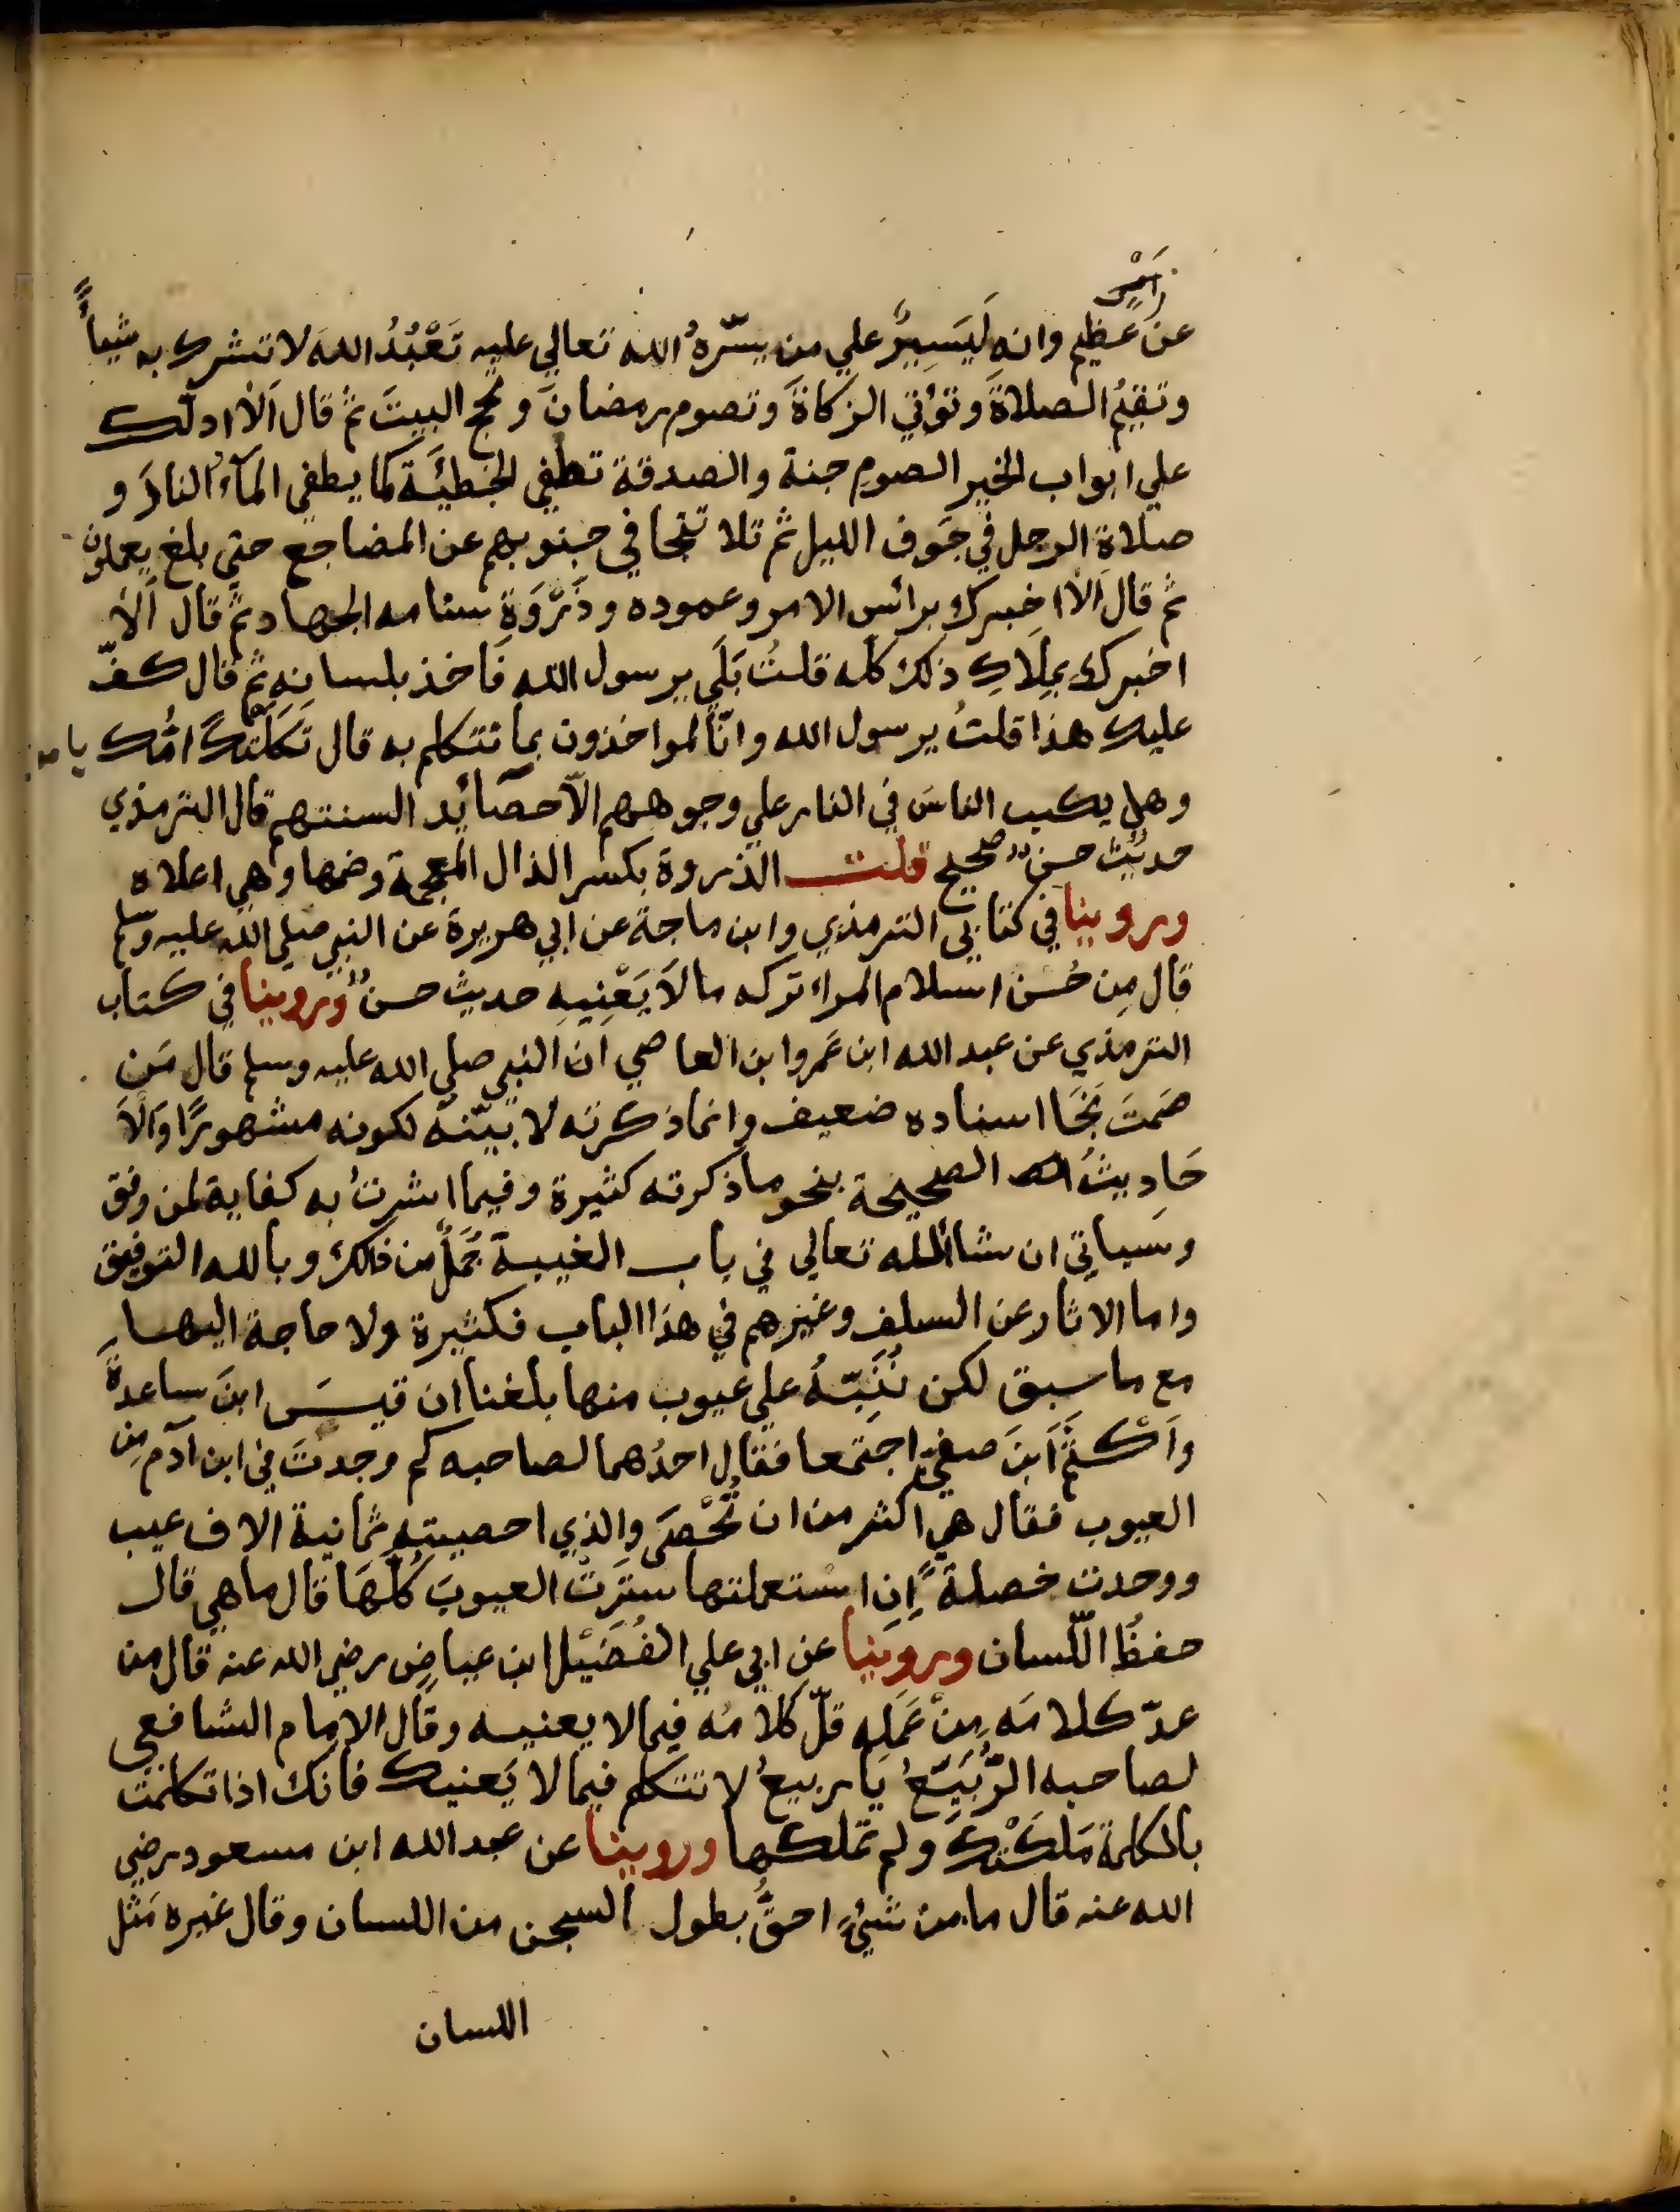 أَمْرٍ
عن عظيم وانه لَيَسِيرٌ علي من يسّرهُ الله تعالي عليه تَعْبُدُ اللهَ لا تشرك به شيأً
وتقيمُ الصلاةَ وتؤتي الزكاةَ وتصوم رمضانَ وتحج البيتَ ثم قال اَلاَ ادلّك
علي ابواب الخير الصوم جنة والصدقة تطفي الخطيئَة كما يطفي المآءُ النارَ و
صلاة الرجل في جَوف الليل ثم تلا تتجافي جنوبهم عن المضاجع حتى بلغ يعملون
ثم قال اَلاَ اخبرك برائس الامر وعموده وذَِرْوَة سنامه الجهاد ثم قال اَلاَ
اخبرك بمِلاكِ ذلك كله قلتُ بَلَي يرسول الله فَاخذ بلسانِهِ ثم قال كفّ
عليك هذا قلتُ يرسول الله وانّا لمواخذون بما نتكلم به قال ثكلتكَ امُّك يا
وهل يكب الناسَ في النار علي وجوههم الاّ حصائد السنتهم قال الترمذي
حديثٌ حسنٌ صحيح قلت الذروة بكسر الذال المعجمة وضمها وهي اعلاه
وروينا في كتابي الترمذي وابن ماجة عن ابي هريرة عن النبي صلي الله عليه وسلم
قال مِن حُسْن اسلام المراء تركه مالاَ يَعْنِيهِ حديث حسنٌ وروينا في كتاب
الترمذي عن عبد الله ابن عَمروا بن العاصي ان النبي صلي الله عليه وسلم قال مَن
صَمتَ نجَا اسناده ضعيف وانما ذكرته لا بيّنهُ لكونه مشهورًا وَاْلاَ
حَادِيثُ الصحيحة بنحو ما ذكرته كثيرة وفيما اشرتُ به كفاية لمن وفق
وسياتي ان شاالله تعالي في باب الغيبة جُمَلٌ من ذلك وبالله التوفيق
واما الاثار عن السلف وغيرهم في هذا الباب فكثيرة ولا حاجة اليها
مع ما سبق لكن نُنَبِّهُ علي عيوب منها بلغنا ان قيسَ ابنَ ساعدةَ
واَكْثَمَ اَبنَ صيفيّ اجتمعا فقال احدُهما لصاحبه كم وجدتَ في ابن آدم مِن
العيوب فقال هي اكثر من ان تُحْصَى والذي احصيته ثمانية الاف عيب
ووجدت خصلةً اِنِ استعملتها سترتْ العيوبَ كُلَّهَا قال ما هي قال
حفظُ اللّسان وروينا عن ابي علي الفُضَيْل ابن عياض رضي الله عنه قال من
عدّ كلامَه مِن عَمَلِهِ قلّ كلامُه فيما لا يعنيه وقال الامام الشافعي
لصاحبه الرُّبَيِّعُ يا ربيعُ لا تتكلم فيما لا يَعنيك فانك اذا تكلمت
بالكلمة مَلكَتْك ولم تملكها وروينا عن عبد الله ابن مسعود رضي
الله عنه قال ما من شيئٍ احقُّ بطول السجن من اللسان وقال غيره مَثل
اللسان